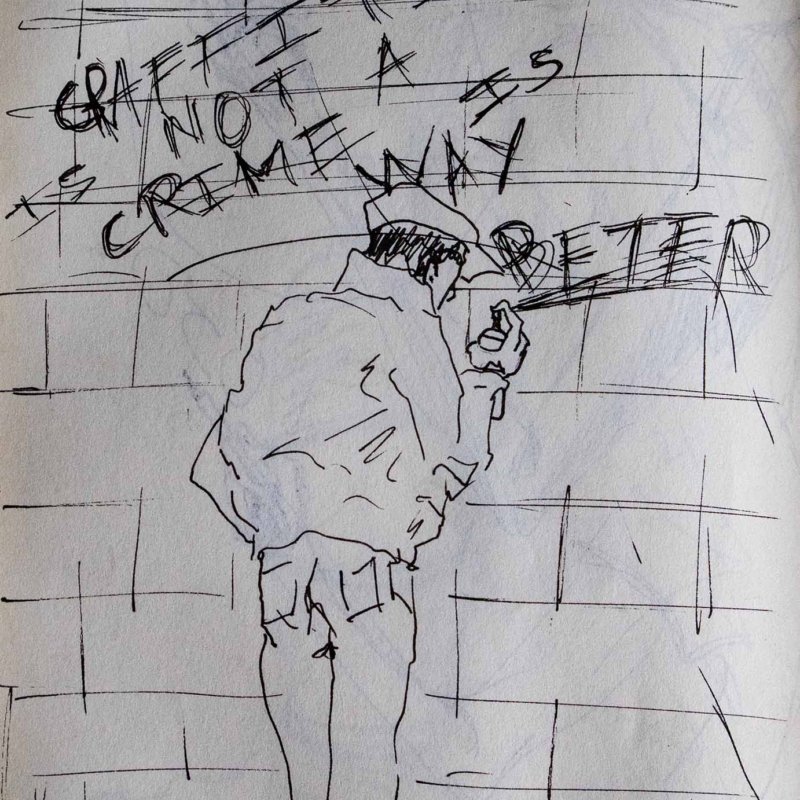 GRAFFITI
IS NOT A
CRIME IS
WAY
BETER